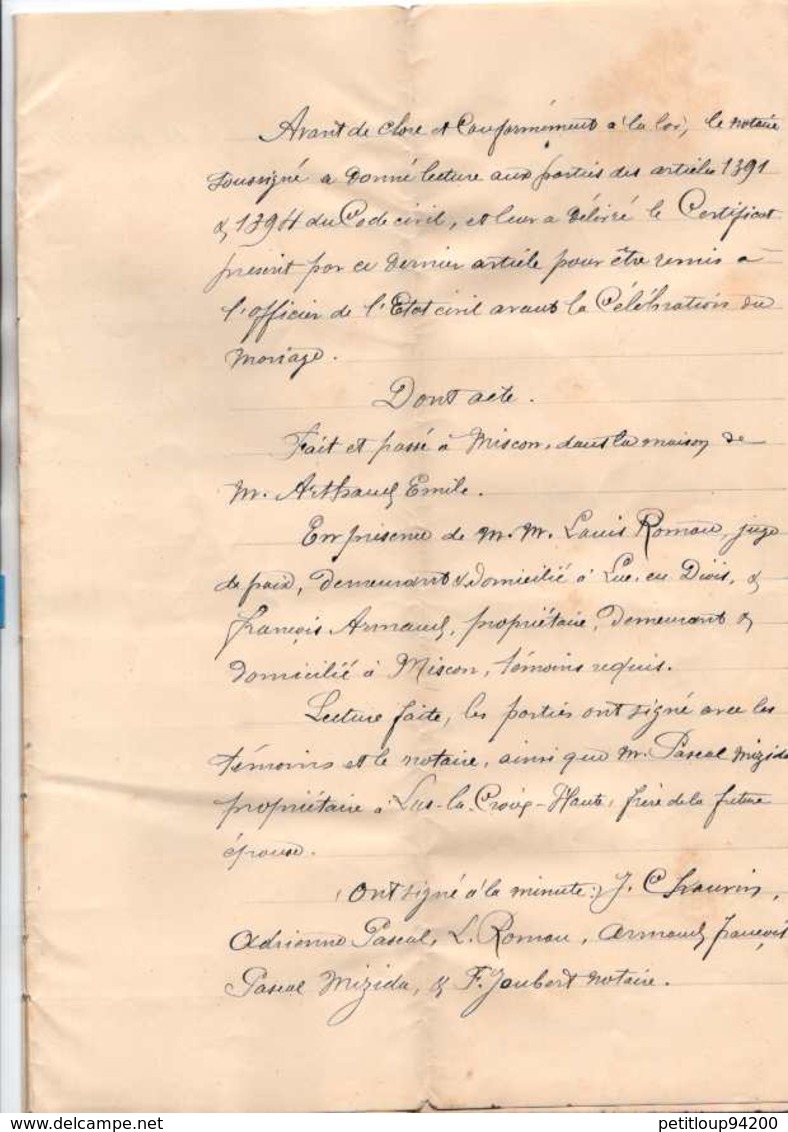 Avant de clore et conformément à la loi, le notaire
soussigné a donné lecture aux parties des articles 1391
& 1394 du Code civil, et leur a délivré le Certificat
prescrit par ce dernier article pour être remis à
l'officier de l'Etat civil avant la Célébration du
mariage.
Dont acte.
Fait et passé à Miscon, dans la maison de
M. Arthaud Emile.
En présence de M.M. Louis Roman, juge
de paix, demeurant & domicilié à Luc-en-Diois, &
François Armand, propriétaire, demeurant &
domicilié à Miscon, témoins requis.
Lecture faite, les parties ont signé avec les
témoins et le notaire, ainsi que M. Pascal Mizida
propriétaire à Lus-la-Croix-Haute, frère de la future
épouse.
Ont signé à la minute: J. Chauvin,
Adrienne Pascal, L. Roman, Armand François
Pascal Mizida, & F. Joubert notaire.
petitloup94200